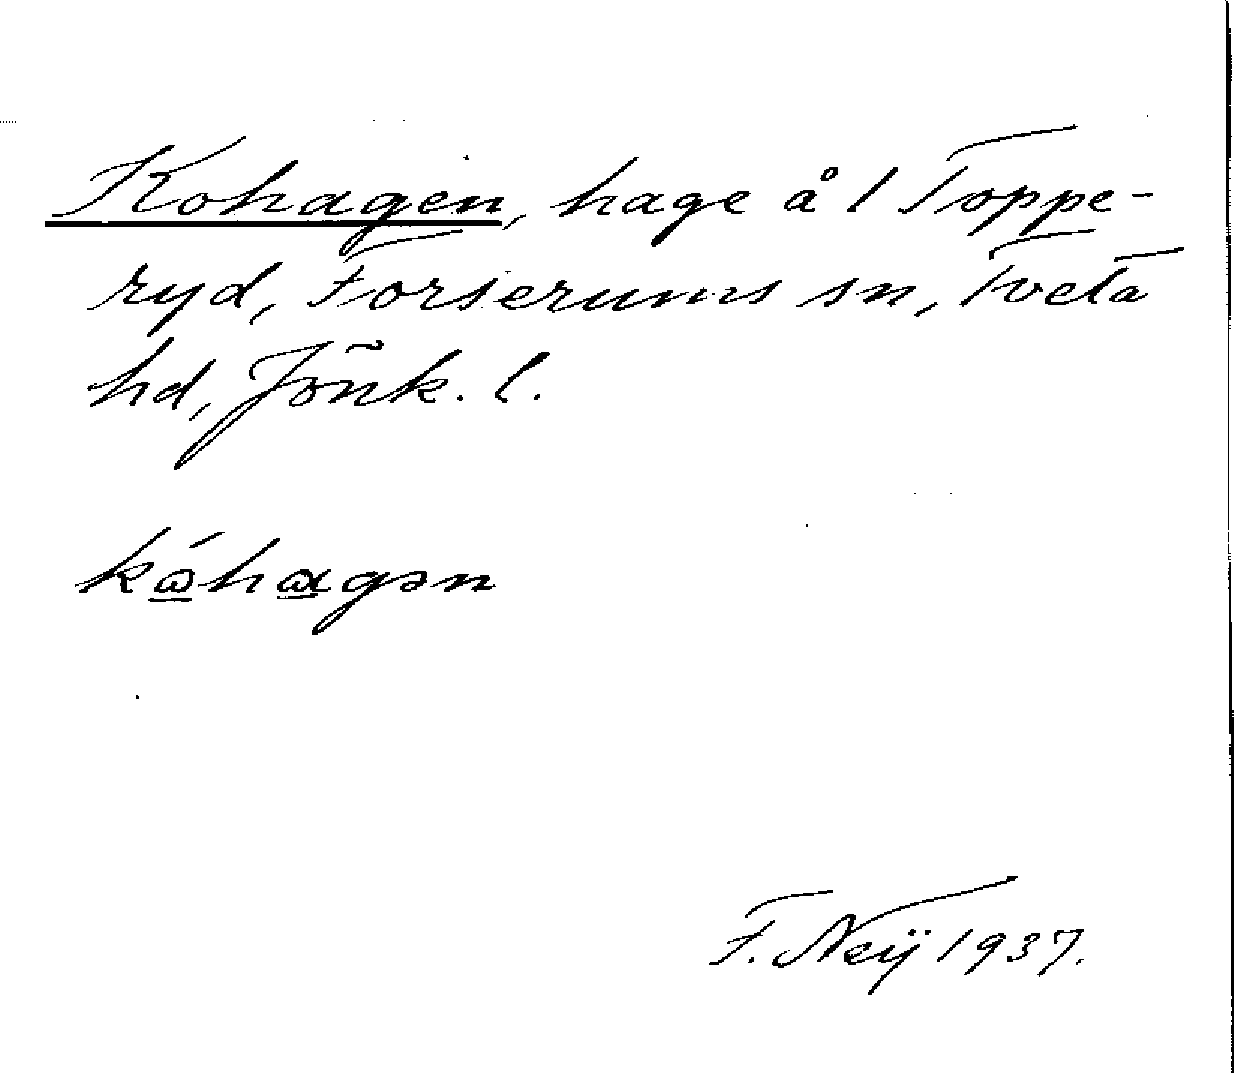 Kohagen, hage å 1 Toppe-
ryd, Forserums sn, Tveta
hd, Jönk. l.
F. Neÿ 1937.